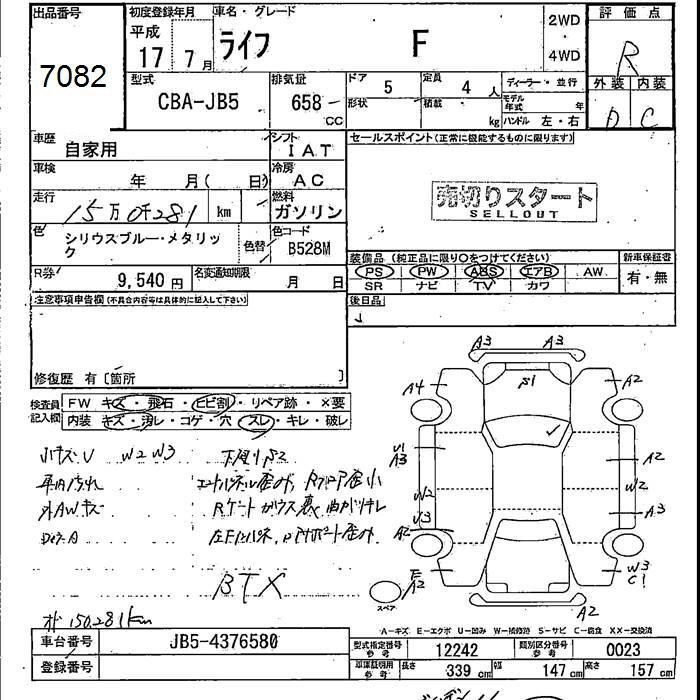 出品番号
7082
初度登録年月
平成
17 7月
車名・グレード
ライフ F
2WD
4WD
評価点
R
外装 内装
D C
型式
CBA-JB5
排気量
658 CC
ドア 5
形状
定員 4 人
積載 kg
ディーラー・並行
モデル年式 年
ハンドル 左・右
車歴
自家用
シフト
IAT
車検
年 月( 日)
冷房
AC
走行
15万0千281 km
燃料
ガソリン
色
シリウスブルー・メタリック
色替
色コード
B528M
R券
9,540円
名変通知期限
月 日
セールスポイント(正常に機能するものに限ります)
売切りスタート
SELLOUT
装備品(純正品に限り○をつけてください)
PS PW ABS エアB AW
SR ナビ TV カワ
新車保証書
有・無
後日品
注意事項申告欄(不具合内容等は具体的に記入して下さい)
修復歴 有〔箇所 〕
検査員記入欄
FW キズ・飛石・ヒビ割・リペア跡・×要
内装 キズ・汚レ・コゲ・穴・スレ・キレ・破レ
小キズU W2 W3
外AWキズ
BTX
オド150,281km
A3 A3
A4 A2
U1
A3
A2
W2 W2
A3
A2
W3
C1
A2
A2
スペア
A-キズ E-エクボ U-凹み W-補修跡 S-サビ C-腐食 XX-交換済
車台番号
JB5-4376580
登録番号
型式指定番号 参考
12242
類別区分番号 参考
0023
車庫証明用 参考
長さ 339 cm
幅 147 cm
高さ 157 cm